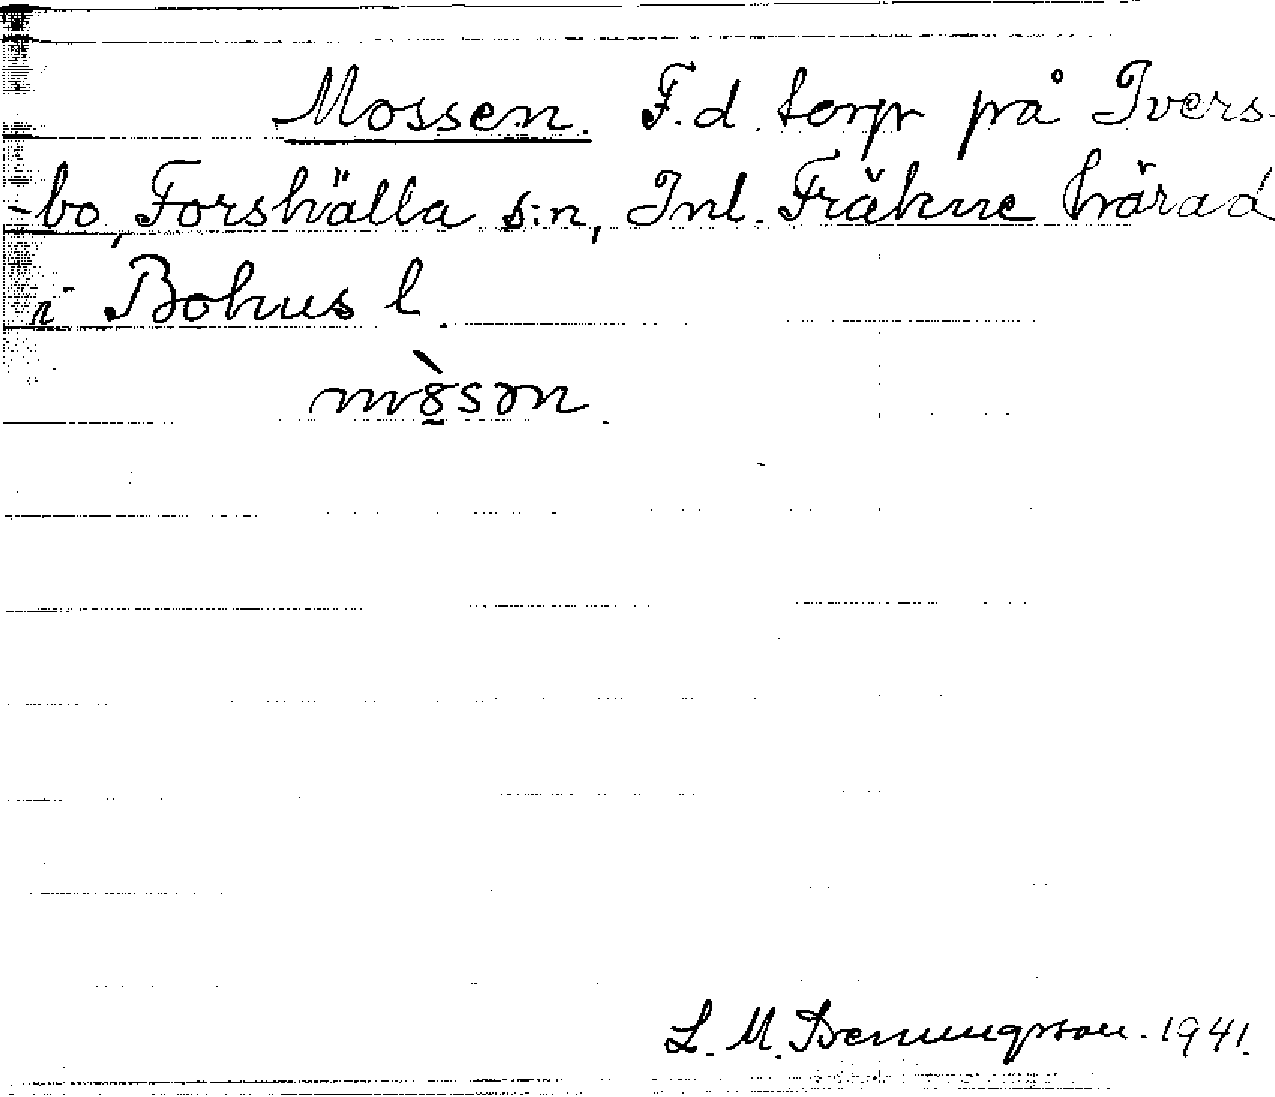 Mossen. F.d. torp på Ivers-
-bo, Forshälla s:n, Inl. Fräkne härad
i Bohus l.
mȯ̀sən.
L. M. Svenungsson. 1941.